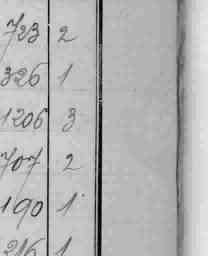 723 2
326 1
1206 3
707 2
190 1
216 1